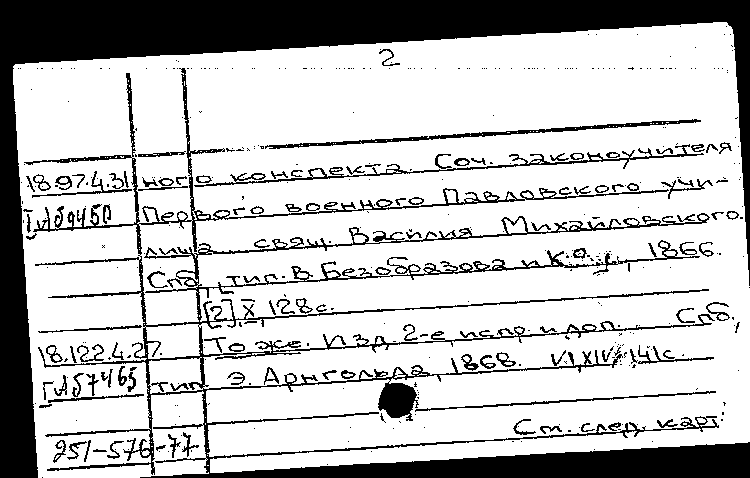 2
18.97.4.31 ного конспекта. Соч. законоучителя
Первого военного Павловского учи-
лища свящ. Василия Михайловского.
Спб, тип. В. Безобразова и К°, 1866.
[2], X, 128 с.
18.122.4.27. То же. Изд. 2-е, испр. и доп. Спб,
тип. Э. Арнгольда, 1868. VI, XIV, 141 с.
251-576-77
См. след. карт.